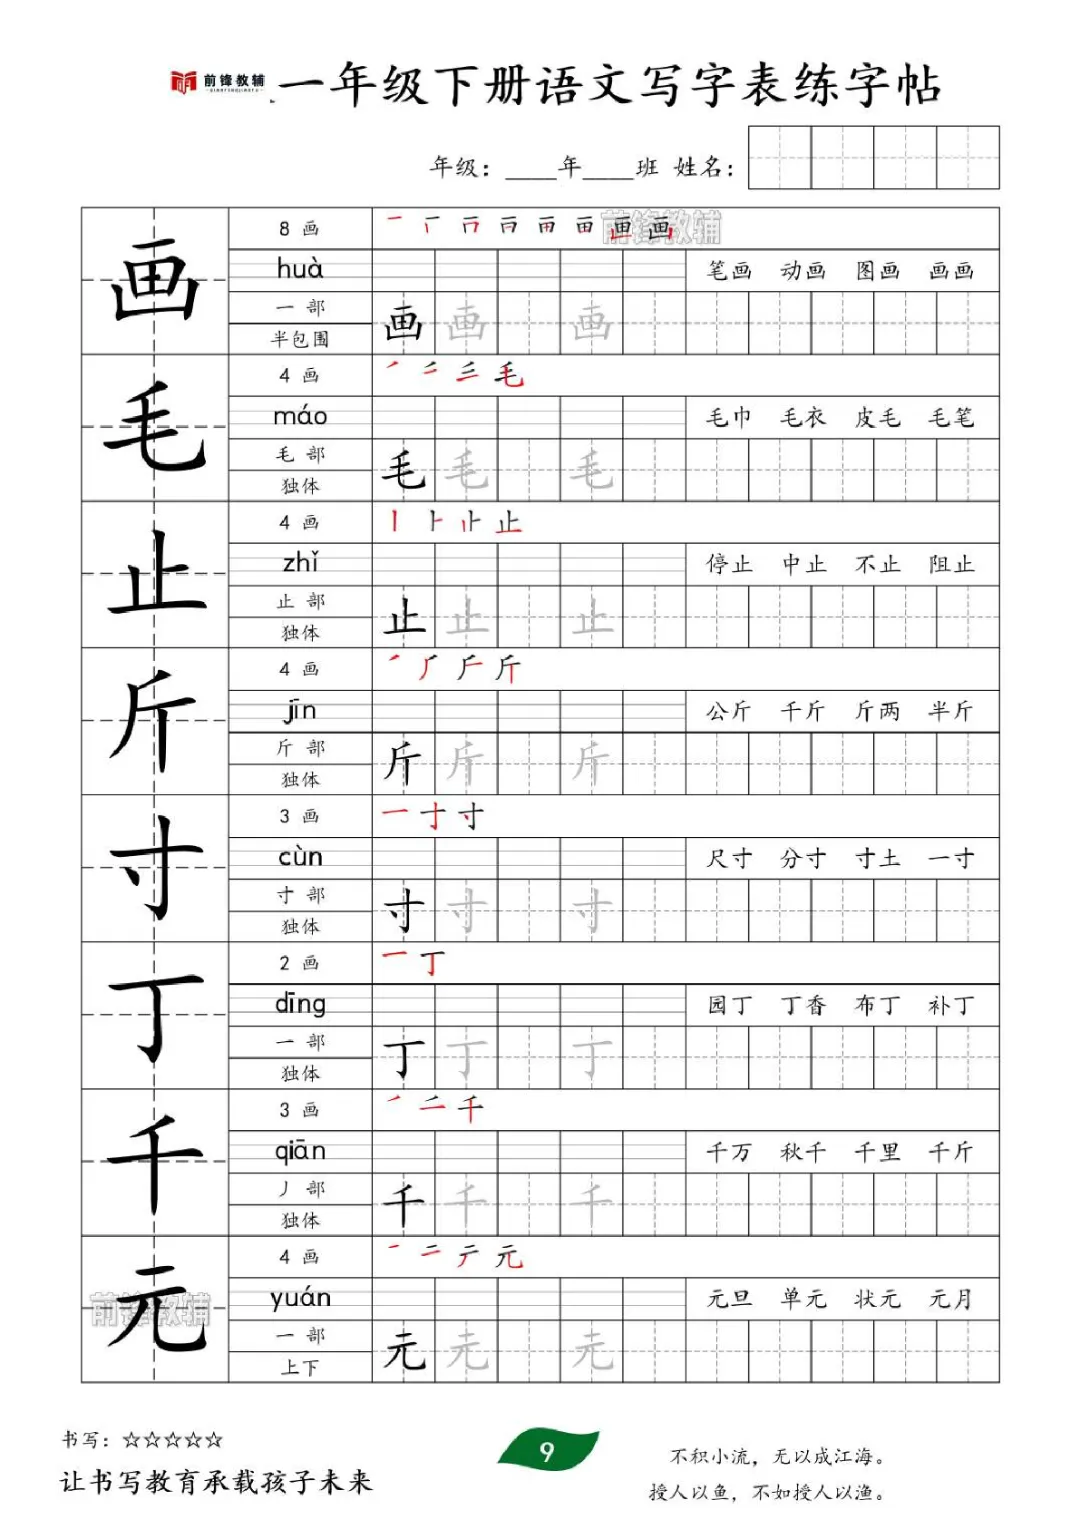 前锋教辅
一年级下册语文写字表练字帖
年级：____年____班 姓名：
画
8 画
前锋教辅
huà
笔画 动画 图画 画画
一 部
半包围
画 画 画
毛
4 画
máo
毛巾 毛衣 皮毛 毛笔
毛 部
独体
毛 毛 毛
止
4 画
丨 ⺊ 止
zhǐ
停止 中止 不止 阻止
止 部
独体
止 止 止
斤
4 画
斤
jīn
公斤 千斤 斤两 半斤
斤 部
独体
斤 斤 斤
寸
3 画
一 寸 寸
cùn
尺寸 分寸 寸土 一寸
寸 部
独体
寸 寸 寸
丁
2 画
一 丁
dīng
园丁 丁香 布丁 补丁
一 部
独体
丁 丁 丁
千
3 画
千
qiān
千万 秋千 千里 千斤
丿 部
独体
千 千 千
元
4 画
元
yuán
元旦 单元 状元 元月
一 部
上下
元 元 元
前锋教辅
书写：☆☆☆☆☆
让书写教育承载孩子未来
9
不积小流，无以成江海。
授人以鱼，不如授人以渔。